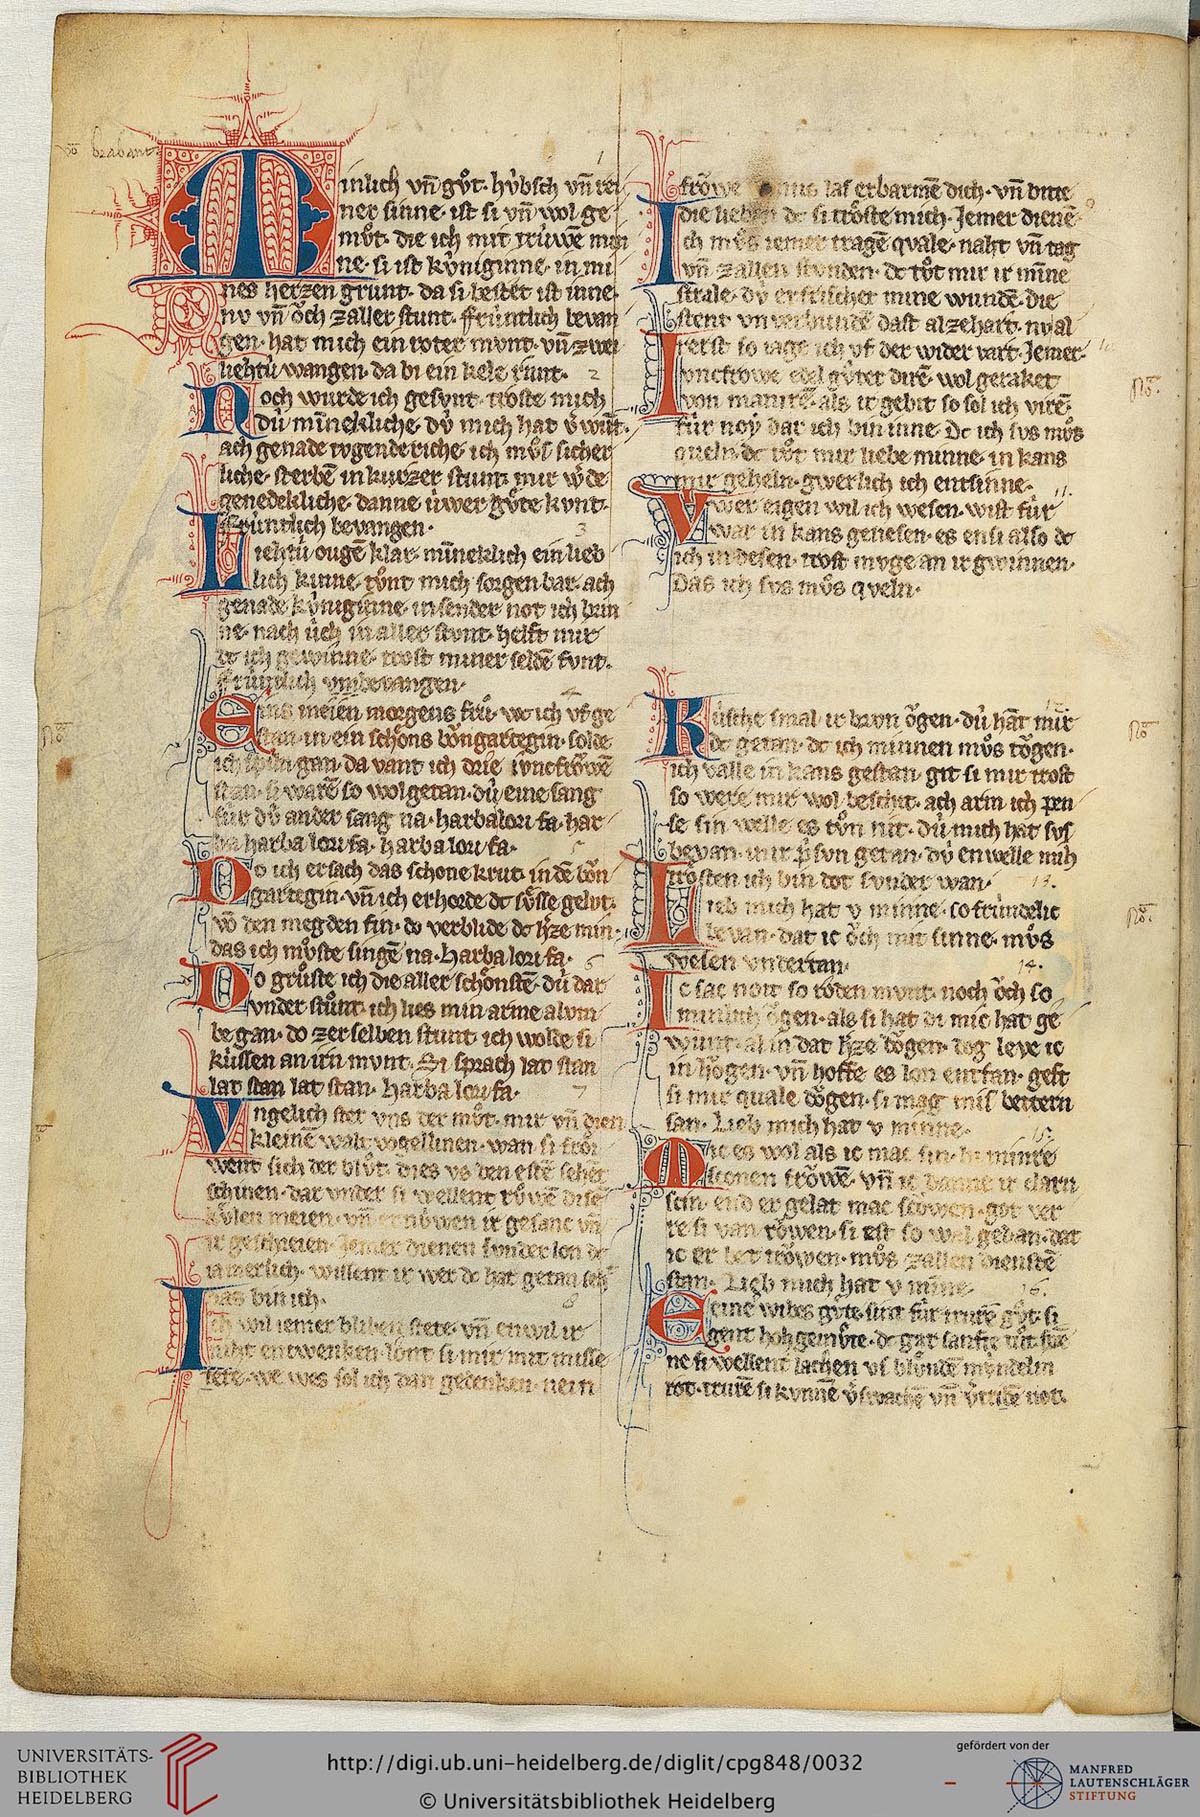 vō brabant
Minlich vn̄ gůt. hv̍bsch vn̄ rei
ner sinne. ist si vn̄ wol ge
můt. die ich mit trúwē mei
ne. si ist kv̍niginne. in mi
nes herzen grunt. da si bestet ist inne.
nv vn̄ ȏch zaller stunt. ffrúntlich bevan
gen. hat mich ein roter mvnt. vn̄ zwei
liehtú wangen. da bi ein kele runt.
Noch wurde ich gesvnt. troste mich
dú mīnekliche. dv̍ mich hat v̍wūt.
ach genade tvgende riche. ich mv̊s sicher
liche. sterbē in kurzer stunt. mir w̍de
genedekliche. danne úwer gv̊te kvnt.
ffrúntlich bevangen.
Liehtú ougē klar. minneklich ein lieb
lich kinne. tv̊nt mich sorgen bar. ach
genade kv̍niginne. in sender not ich brin
ne. nach v̍ch in aller stvnt. helft mir
dc ich gewinne. trost miner seldē fvnt.
frúntlich vmbevangen.
Eins meien morgens frů. wc ich vf ge
stan. in ein schȏns bȏngartegin. solde
ich spiln gan. da vant ich drie ivncfrȏwē
stan. si warē so wol getan. dú eine sang
fúr dv̍ ander sang na. harba lori fa. har
ba harba lori fa. harba lori fa.
Do ich ersach das schone krut. in dē bȏn
gartegin. vn̄ ich erhorde dc sv̊sse gelut.
vō den megden fin. do verblide dc h̍ze min.
das ich mv̊ste singē na. harba lori fa.
Do grůste ich die aller schȏnstē. dú dar
vnder stůnt. ich lies min arme al vm
be gan. do zer selben stunt. ich wolde si
kússen an irn mvnt. Si sprach lat stan
lat stan lat stan. harba lori fa.
Vngelich stet vns der můt. mir vn̄ dien
kleinē walt vogellinen. wan si frȏi
went sich der blůt. dies vs den estē sehēt
schinen. dar vnder si wellent růwē dise
kv̊len meien. vn̄ ernúwen ir gesanc vn̄
ir geschreien. Jemer dienen sunder lon dc
iamerlich. wissent ir wer dc hat getan seh͛
das bin ich.
Ich wil iemer bliben stete. vn̄ enwil ir
niht entwenken. lȏnt si mir mit misse
tete. we wes sol ich dan gedenken. nein
frȏwe venus las erbarmē dich. vn̄ bitte
die lieben dc si trȏste mich. Jemer dienē
Ich mv̊s iemer tragē qvale. naht vn̄ tag
vn̄ zallen stunden. dc tůt mir ir mīne
strale. dv̍ erfrischet mine wundē. die
stent vnverbundē dast al ze hart. nv al
rerst so iage ich vf der wider vart. Jemer.
Ivncfrowe edel gv̊ter dirē. wol geraket
von manirē. als ir gebit so sol ich virē.
fúr noý dar ich bin inne. Dc ich svs mv̊s
queln. dc tůt mir liebe minne. in kans
mir geheln. gwerlich ich entsinne.
Vwer eigen wil ich wesen. wist fúr
war in kans genesen. es en si also dc
ich in desen. trost mvge an ir gwinnen.
Das ich svs mv̊s qveln.
Rúsche smal. ir brvn ȏgen. dú hāt mir
dc getan. dc ich minnen mv̊s tȏgen.
ich valle in kans gestan. git si mir trost
so were mir wol beschit. ach arm ich pen
se sin welle es tůn nit. dú mich hat svs
bevan. mir p̍svn getan. dv̍ en welle mih
trȏsten ich bin dot sunder wan.
Lieb mich hat v minne. so frúndelic
bevan. dat ic ȏch mit sinne. mv̊s
wesen vndertan.
Ic sac noit so roden mvnt. noch ȏch so
minlich ȏgen. als si hat di mic hat ge
wunt. al in dat h̍ze dȏgen. dog leve ic
in hȏgen. vn̄ hoffe es lon entfan. geft
si mir quale dȏgen. si mag mis bettern
san. Lieb mich hat v minne.
Mic es wol als ic mac sin. bi minre
sconen frȏwē. vn̄ ic danne ir clarn
scin. end er gelat mac scȏwen. got ver
re si van rȏwen. si est so wal gedan. dat
ic er bet trȏwen. mv̊s zallen dienstē
stan. Lieb mich hat v mīne.
Reine wibes gv̊te. sint fúr trurē gůt. si
gent hohgemv̊te. dc gar sanfte tůt. swē
ne si wellent lachen vs blůndē mvndelin
rot. trurē si kvnnē v̍swachē vn̄ v̍tribē not.
1
2
3
4
5
6
7
8
9
10
11.
12
13.
14.
15.
16.
UNIVERSITÄTS-
BIBLIOTHEK
HEIDELBERG
http://digi.ub.uni-heidelberg.de/diglit/cpg848/0032
© Universitätsbibliothek Heidelberg
gefördert von der
MANFRED
LAUTENSCHLÄGER
STIFTUNG